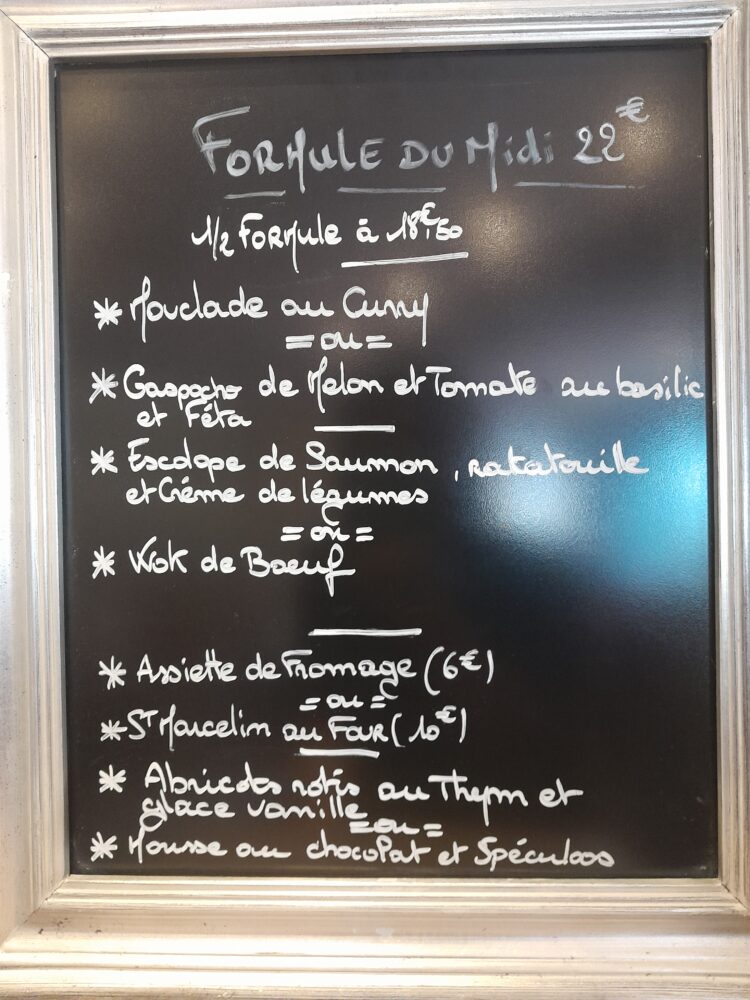 FORMULE DU Midi 22€
1/2 FORMULE à 18€,50
* Mouclade au Curry
= ou =
* Gaspacho de Melon et Tomate au basilic
et Féta
* Escalope de Saumon, ratatouille
et Crème de légumes
= ou =
* Wok de Boeuf
* Assiette de Fromage (6€)
= ou =
* St Marcelin au Four (10€)
* Abricots rotis au Thym et
glace vanille
= ou =
* Mousse au chocolat et Spéculoos